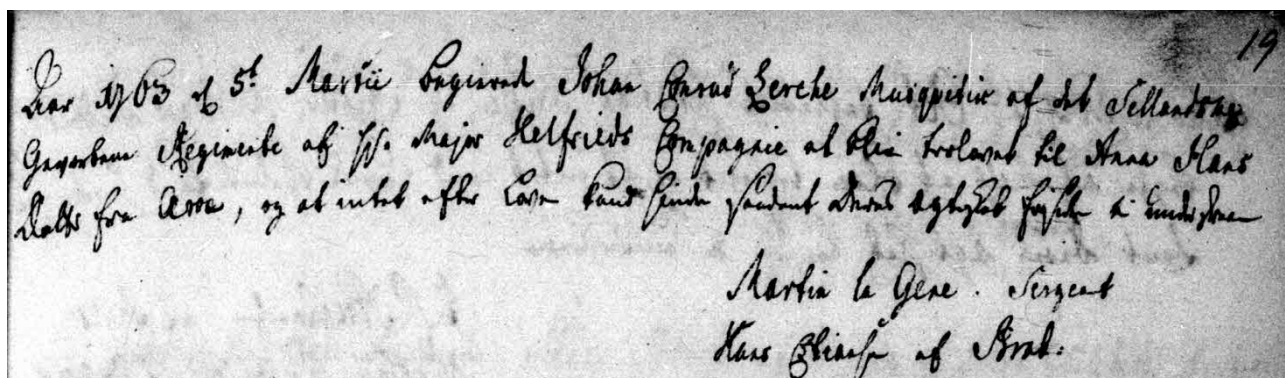 19
Anno 1763 d 5t Martii begierede Johan Conrad Lerche Musqvetier af det Sellandske
Gevorbene Regimente af Hr. Major Helfrieds Compagnie at blive trolovet til Anna Hans
Datter fra Aroe, og at intet efter Loven kand hindre saadant Deres Ægteskab vi underskrevne
Martin la Gene. Sergent
Hans af